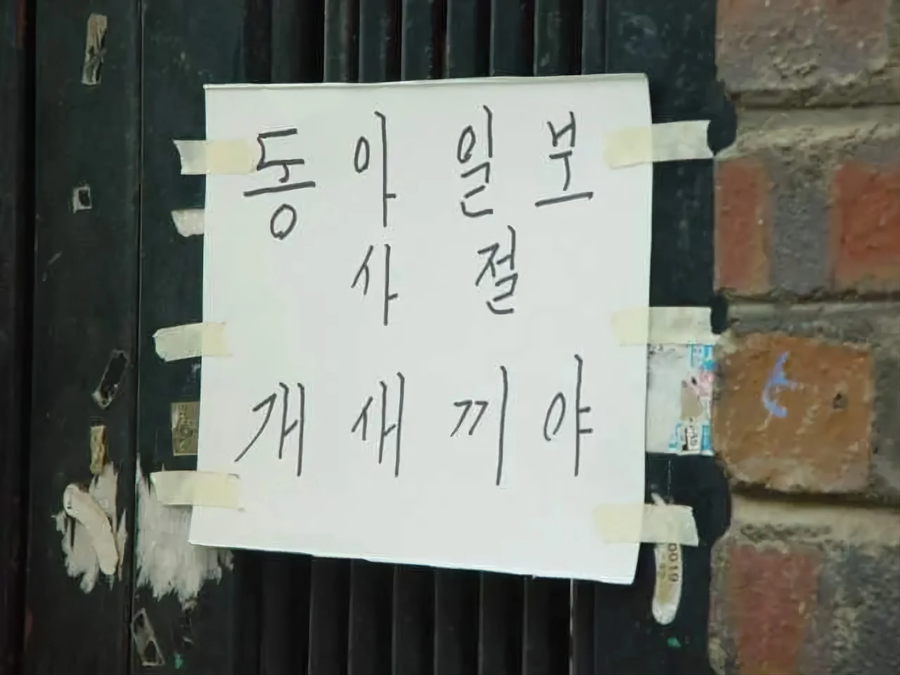 동아일보
사절
개새끼야
0019